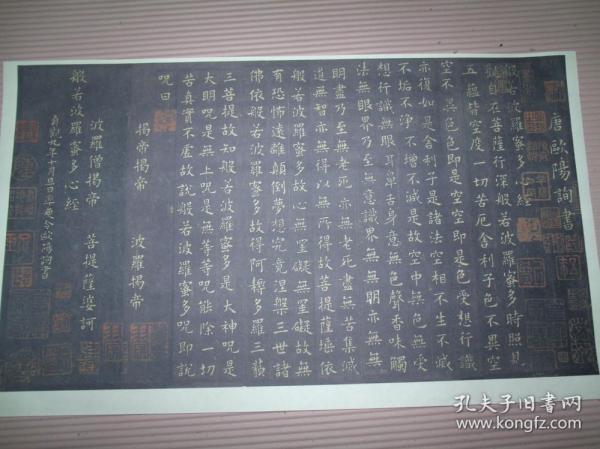 唐歐陽詢書
般若波羅蜜多心經
觀自在菩薩行深般若波羅蜜多時照見
五蘊皆空度一切苦厄舍利子色不異空
空不異色色即是空空即是色受想行識
亦復如是舍利子是諸法空相不生不滅
不垢不淨不增不減是故空中無色無受
想行識無眼耳鼻舌身意無色聲香味觸
法無眼界乃至無意識界無無明亦無無
明盡乃至無老死亦無老死盡無苦集滅
道無智亦無得以無所得故菩提薩埵依
般若波羅蜜多故心無罣礙無罣礙故無
有恐怖遠離顛倒夢想究竟涅槃三世諸
佛依般若波羅蜜多故得阿耨多羅三藐
三菩提故知般若波羅蜜多是大神呪是
大明呪是無上呪是無等等呪能除一切
苦真實不虛故說般若波羅蜜多呪即說
呪曰
揭帝揭帝 波羅揭帝
波羅僧揭帝 菩提薩婆訶
般若波羅蜜多心經
貞觀九年十月旦日率更令歐陽詢書
孔夫子旧书网
www.kongfz.com